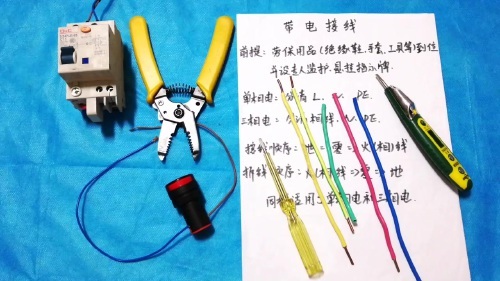 带电接线
前提：劳保用品(绝缘鞋,手套,工具等)到位
并设专人监护.悬挂指示牌.
单相电：分清 L. N. PE.
三相电：分清相线. N. PE.
接线顺序：地⇒零⇒火(相)线
拆线顺序：火(相)线⇒零⇒地
同样适用：单相电和三相电